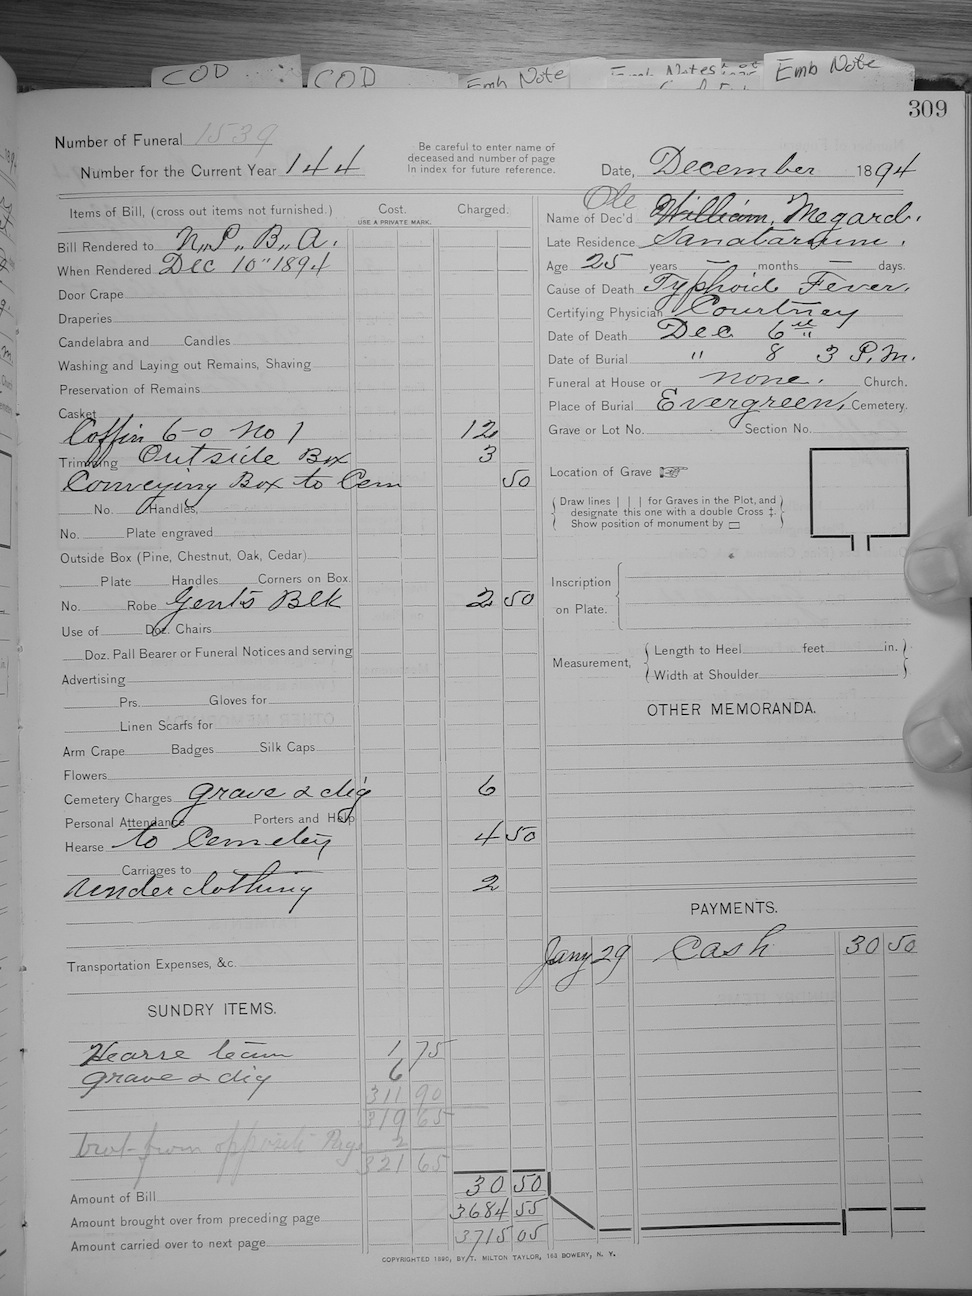 COD
COD
Emb Note
Emb Notes
Emb Note
309
Number of Funeral 1539
Number for the Current Year 144
Be careful to enter name of
deceased and number of page
in index for future reference.
Date, December 1894
Items of Bill, (cross out items not furnished.) Cost. Charged.
USE A PRIVATE MARK.
Bill Rendered to N., P., B., A.
When Rendered Dec 10" 1894
Door Crape
Draperies
Candelabra and Candles
Washing and Laying out Remains, Shaving
Preservation of Remains
Casket
Coffin 6-0 No 1 12
Trimming Outside Box 3
Conveying Box to Cem 50
No. Handles,
No. Plate engraved
Outside Box (Pine, Chestnut, Oak, Cedar)
Plate Handles Corners on Box
No. Robe Gents Blk 2 50
Use of Doz. Chairs
Doz. Pall Bearer or Funeral Notices and serving
Advertising
Prs. Gloves for
Linen Scarfs for
Arm Crape Badges Silk Caps
Flowers
Cemetery Charges grave & dig 6
Personal Attendance Porters and Help
Hearse to Cemetery 4 50
Carriages to
Underclothing 2
Transportation Expenses, &c.
SUNDRY ITEMS.
Hearse team 1 75
grave & dig 6
311 90
319 65
brot from opposite Page 2
321 65
Amount of Bill 30 50
Amount brought over from preceding page 3684 55
Amount carried over to next page 3715 05
Ole
Name of Dec'd William Megard.
Late Residence Sanatarium.
Age 25 years — months — days.
Cause of Death Typhoid Fever.
Certifying Physician Courtney
Date of Death Dec 6th
Date of Burial " 8 3 P.M.
Funeral at House or none. Church.
Place of Burial Evergreen, Cemetery.
Grave or Lot No. Section No.
Location of Grave ☞
Draw lines | | | for Graves in the Plot, and
designate this one with a double Cross ‡.
Show position of monument by ▭
Inscription
on Plate.
Measurement,
Length to Heel feet in.
Width at Shoulder
OTHER MEMORANDA.
PAYMENTS.
Jany 29 Cash 30 50
COPYRIGHTED 1890, BY T. MILTON TAYLOR, 163 BOWERY, N. Y.